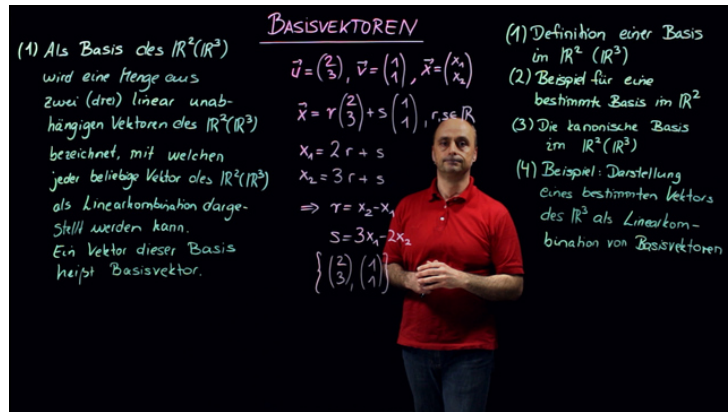 BASISVEKTOREN
(1) Als Basis des ℝ²(ℝ³)
wird eine Menge aus
zwei (drei) linear unab-
hängigen Vektoren des ℝ²(ℝ³)
bezeichnet, mit welchen
jeder beliebige Vektor des ℝ²(ℝ³)
als Linearkombination darge-
stellt werden kann.
Ein Vektor dieser Basis
heißt Basisvektor.
u⃗ = (2 3), v⃗ = (1 1), x⃗ = (x₁ x₂)
x⃗ = r (2 3) + s (1 1), r,s∈ℝ
x₁ = 2r + s
x₂ = 3r + s
⇒ r = x₂ - x₁
s = 3x₁ - 2x₂
{(2 3), (1 1)}
(1) Definition einer Basis
im ℝ² (ℝ³)
(2) Beispiel für eine
bestimmte Basis im ℝ²
(3) Die kanonische Basis
im ℝ² (ℝ³)
(4) Beispiel: Darstellung
eines bestimmten Vektors
des ℝ³ als Linearkom-
bination von Basisvektoren